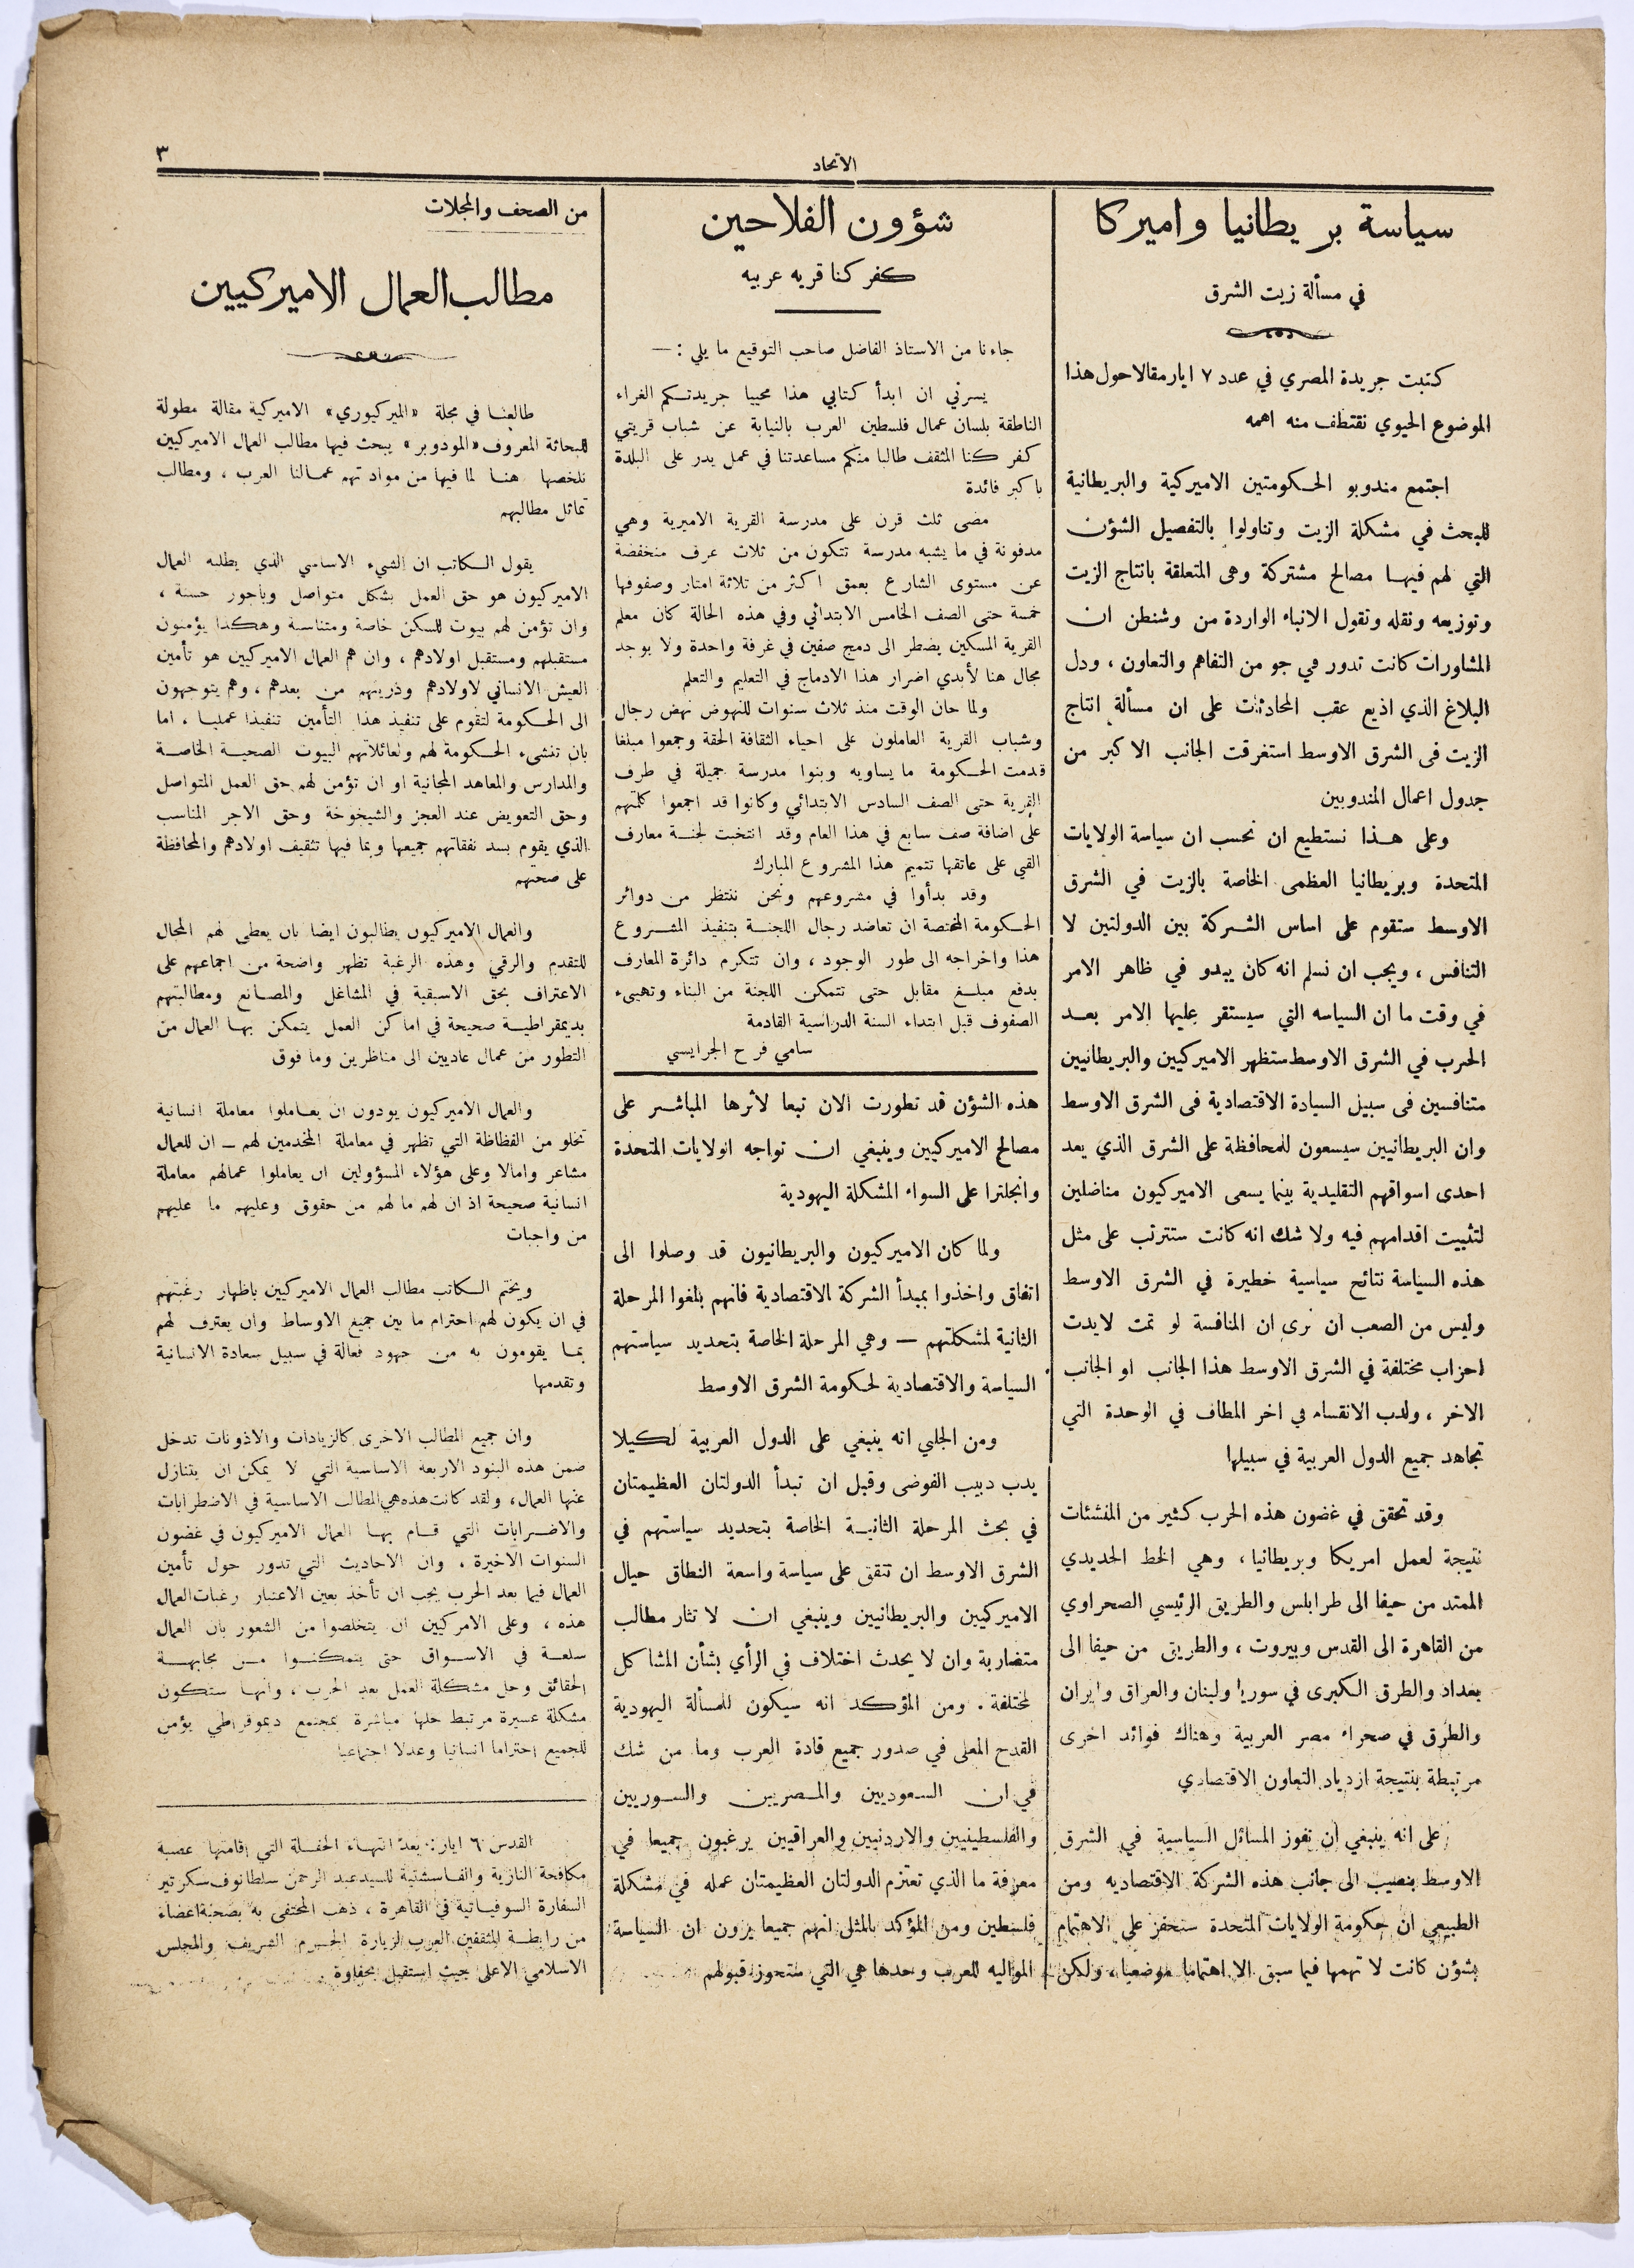 ٣
الاتحاد
سياسة بريطانيا واميركا
في مسألة زيت الشرق
كتبت جريدة المصري في عدد ٧ ايار مقالا حول هذا
الموضوع الحيوي نقتطف منه اهمه
اجتمع مندوبو الحكومتين الاميركية والبريطانية
للبحث في مشكلة الزيت وتناولوا بالتفصيل الشؤن
التي لهم فيها مصالح مشتركة وهى المتعلقة بانتاج الزيت
وتوزيعه ونقله وتقول الانباء الواردة من وشنطن ان
المشاورات كانت تدور في جو من التفاهم والتعاون ، ودل
البلاغ الذي اذيع عقب المحادثات على ان مسألة انتاج
الزيت فى الشرق الاوسط استغرقت الجانب الاكبر من
جدول اعمال المندوبين
وعلى هذا نستطيع ان نحسب ان سياسة الولايات
المتحدة وبريطانيا العظمى الخاصة بالزيت في الشرق
الاوسط ستقوم على اساس الشركة بين الدولتين لا
التنافس ، ويجب ان نسلم انه كان يبدو في ظاهر الامر
في وقت ما ان السياسه التي سيستقر عليها الامر بعد
الحرب في الشرق الاوسط ستظهر الاميركيين والبريطانيين
متنافسين فى سبيل السيادة الاقتصادية فى الشرق الاوسط
وان البريطانيين سيسعون للمحافظة على الشرق الذي يعد
احدى اسواقهم التقليدية بينما يسعى الاميركيون مناضلين
لتثبيت اقدامهم فيه ولا شك انه كانت ستترتب على مثل
هذه السياسة نتائج سياسية خطيرة في الشرق الاوسط
وليس من الصعب ان نرى ان المنافسة لو تمت لايدت
احزاب مختلفة في الشرق الاوسط هذا الجانب او الجانب
الاخر ، ولدب الانقسام في اخر المطاف في الوحدة التي
تجاهد جميع الدول العربية في سبيلها
وقد تحقق في غضون هذه الحرب كثير من المنشئات
نتيجة لعمل امريكا وبريطانيا ، وهي الخط الحديدي
الممتد من حيفا الى طرابلس والطريق الرئيسي الصحراوي
من القاهرة الى القدس وبيروت ، والطريق من حيفا الى
بغداد والطرق الكبرى في سوريا ولبنان والعراق وايران
والطرق في صحراء مصر العربية وهناك فوائد اخرى
مرتبطة بنتيجة ازدياد التعاون الاقتصادي
على انه ينبغي ان تفوز المسائل السياسية في الشرق
الاوسط بنصيب الى جانب هذه الشركة الاقتصاديه ومن
الطبيعي ان حكومة الولايات المتحدة ستحفز على الاهتمام
بشؤن كانت لا تهمها فيما سبق الا اهتماما موضعيا ، ولكن
شؤون الفلاحين
كفر كنا قريه عربيه
جاءنا من الاستاذ الفاضل صاحب التوقيع ما يلي : —
يسرني ان ابدأ كتابي هذا محييا جريدتكم الغراء
الناطقة بلسان عمال فلسطين العرب بالنيابة عن شباب قريتي
كفر كنا المثقف طالبا منكم مساعدتنا في عمل يدر على البلدة
باكبر فائدة
مضى ثلث قرن على مدرسة القرية الاميرية وهي
مدفونة في ما يشبه مدرسة تتكون من ثلاث غرف منخفضة
عن مستوى الشارع بعمق اكثر من ثلاثة امتار وصفوفها
خمسة حتى الصف الخامس الابتدائي وفي هذه الحالة كان معلم
القرية المسكين يضطر الى دمج صفين في غرفة واحدة ولا يوجد
مجال هنا لأبدي اضرار هذا الادماج في التعليم والتعلم
ولما حان الوقت منذ ثلاث سنوات للنهوض نهض رجال
وشباب القرية العاملون على احياء الثقافة الحقة وجمعوا مبلغا
قدمت الحكومة ما يساويه وبنوا مدرسة جميلة في طرف
القرية حتى الصف السادس الابتدائي وكانوا قد اجمعوا كلمتهم
على اضافة صف سابع في هذا العام وقد انتخبت لجنة معارف
القي على عاتقها تتميم هذا المشروع المبارك
وقد بدأوا في مشروعهم ونحن ننتظر من دوائر
الحكومة المختصة ان تعاضد رجال اللجنة بتنفيذ المشروع
هذا واخراجه الى طور الوجود ، وان تتكرم دائرة المعارف
بدفع مبلغ مقابل حتى تتمكن اللجنة من البناء وتهييء
الصفوف قبل ابتداء السنة الدراسية القادمة
سامي فرح الجرايسي
هذه الشؤن قد تطورت الان تبعا لأثرها المباشر على
مصالح الاميركيين وينبغي ان تواجه الولايات المتحدة
وانجلترا على السواء المشكلة اليهودية
ولما كان الاميركيون والبريطانيون قد وصلوا الى
اتفاق واخذوا بمبدأ الشركة الاقتصادية فانهم بلغوا المرحلة
الثانية لمشكلتهم — وهي المرحلة الخاصة بتحديد سياستهم
السياسة والاقتصادية لحكومة الشرق الاوسط
ومن الجلي انه ينبغي على الدول العربية لكيلا
يدب دبيب الفوضى وقبل ان تبدأ الدولتان العظيمتان
في بحث المرحلة الثانية الخاصة بتحديد سياستهم في
الشرق الاوسط ان تتفق على سياسة واسعة النطاق حيال
الاميركيين والبريطانيين وينبغي ان لا تثار مطالب
متضاربة وان لا يحدث اختلاف في الرأي بشأن المشاكل
المختلفة . ومن المؤكد انه سيكون للمسألة اليهودية
القدح المعلى في صدور جميع قادة العرب وما من شك
في ان السعوديين والمصريين والسوريين
والفلسطينيين والاردنيين والعراقيين يرغبون جميعا في
معرفة ما الذي تعتزم الدولتان العظيمتان عمله في مشكلة
فلسطين ومن المؤكد بالمثل انهم جميعا يرون ان السياسة
المواليه للعرب وحدها هي التي ستحوز قبولهم
من الصحف والمجلات
مطالب العمال الاميركيين
طالعنا في مجلة «الميركيوري» الاميركية مقالة مطولة
للبحاثة المعروف «المودوبر» يبحث فيها مطالب العمال الاميركيين
نلخصها هنا لما فيها من مواد تهم عمالنا العرب ، ومطالب
تماثل مطالبهم
يقول الكاتب ان الشيء الاساسي الذي يطلبه العمال
الاميركيون هو حق العمل بشكل متواصل وباجور حسنة ،
وان تؤمن لهم بيوت للسكن خاصة ومتناسبة وهكذا يؤمنون
مستقبلهم ومستقبل اولادهم ، وان هم العمال الاميركيين هو تأمين
العيش الانساني لاولادهم وذريتهم من بعدهم ، وهم يتوجهون
الى الحكومة لتقوم على تنفيذ هذا التأمين تنفيذا عمليا ، اما
بان تنشىء الحكومة لهم ولعائلاتهم البيوت الصحية الخاصة
والمدارس والمعاهد المجانية او ان تؤمن لهم حق العمل المتواصل
وحق التعويض عند العجز والشيخوخة وحق الاجر المناسب
الذي يقوم بسد نفقاتهم جميعها وبما فيها تثقيف اولادهم والمحافظة
على صحتهم
والعمال الاميركيون يطالبون ايضا بان يعطى لهم المجال
للتقدم والرقي وهذه الرغبة تظهر واضحة من اجماعهم على
الاعتراف بحق الاسبقية في المشاغل والمصانع ومطالبتهم
بديمقراطية صحيحة في اماكن العمل يتمكن بها العمال من
التطور من عمال عاديين الى مناظرين وما فوق
والعمال الاميركيون يودون ان يعاملوا معاملة انسانية
تخلو من الفظاظة التي تظهر في معاملة المخدمين لهم — ان للعمال
مشاعر وامالا وعلى هؤلاء المسؤولين ان يعاملوا عمالهم معاملة
انسانية صحيحة اذ ان لهم ما لهم من حقوق وعليهم ما عليهم
من واجبات
ويختم الكاتب مطالب العمال الاميركيين باظهار رغبتهم
في ان يكون لهم احترام ما بين جميع الاوساط وان يعترف لهم
بما يقومون به من جهود فعالة في سبيل سعادة الانسانية
وتقدمها
وان جميع المطالب الاخرى كالزيادات والاذونات تدخل
ضمن هذه البنود الاربعة الاساسية التي لا يمكن ان يتنازل
عنها العمال ، ولقد كانت هذه هي المطالب الاساسية في الاضطرابات
والاضرابات التي قام بها العمال الاميركيون في غضون
السنوات الاخيرة ، وان الاحاديث التي تدور حول تأمين
العمال فيما بعد الحرب يجب ان تأخذ بعين الاعتبار رغبات العمال
هذه ، وعلى الامركيين ان يتخلصوا من الشعور بان العمال
سلعة في الاسواق حتى يتمكنوا من مجابهة
الحقائق وحل مشكلة العمل بعد الحرب ، وانها ستكون
مشكلة عسيرة مرتبط حلها مباشرة بمجتمع ديموقراطي يؤمن
للجميع احتراما انسانيا وعدلا اجتماعيا
القدس ٦ ايار : بعد انتهاء الحفلة التي اقامتها عصبة
مكافحة النازية والفاسشتية للسيد عبد الرحمن سلطانوف سكرتير
السفارة السوفياتية في القاهرة ، ذهب المحتفى به بصحبة اعضاء
من رابطة المثقفين العرب لزيارة الحرم الشريف والمجلس
الاسلامي الاعلى حيث استقبل بحفاوة